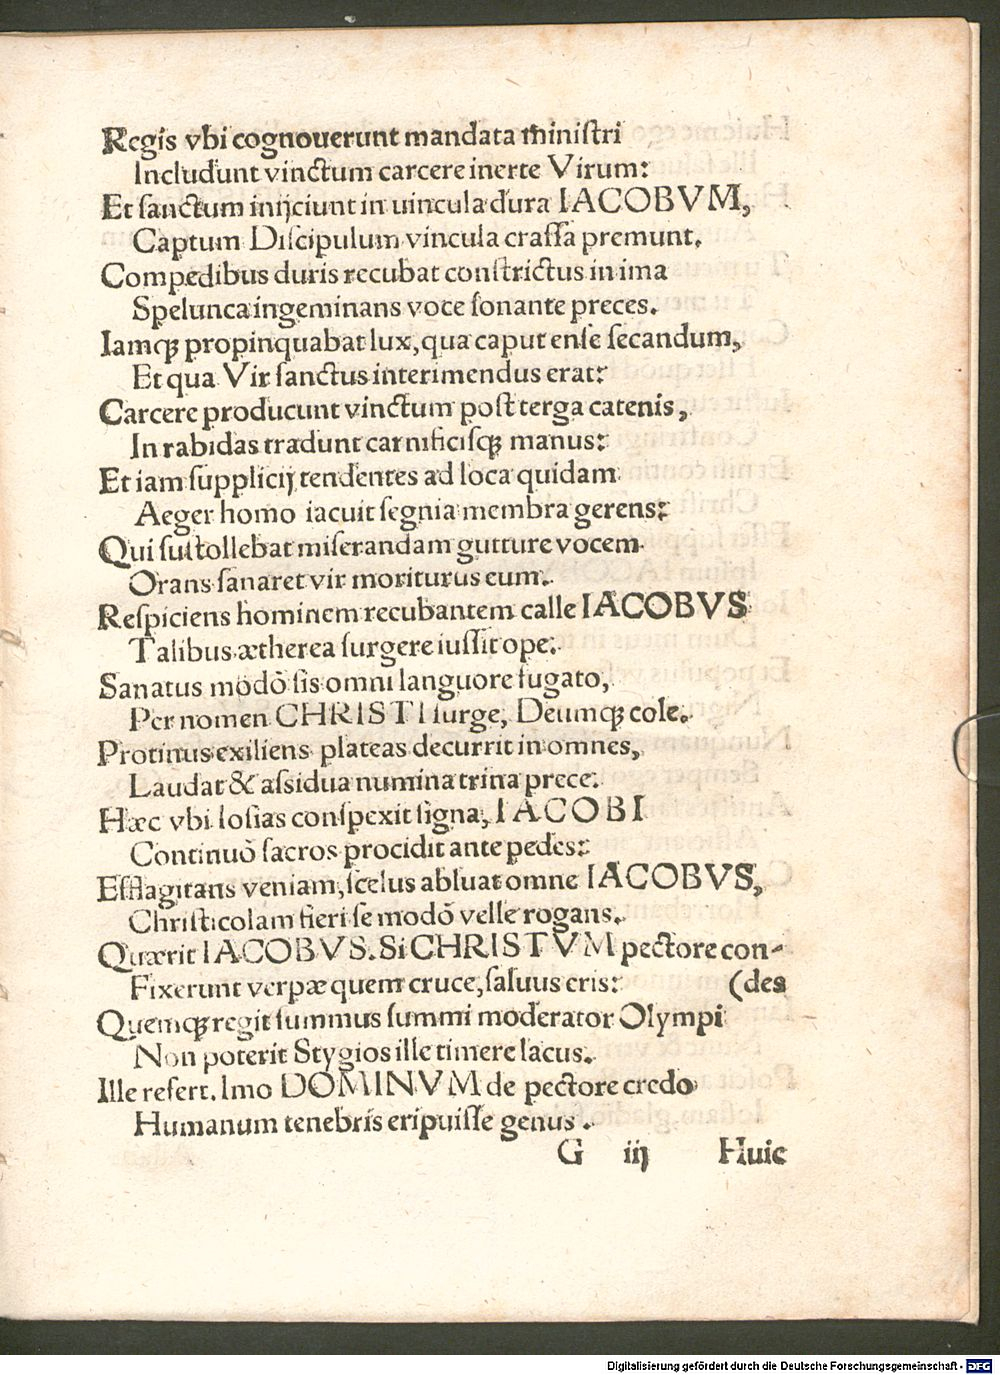 Regis vbi cognouerunt mandata ministri
Includunt vinctum carcere inerte Virum:
Et sanctum inijciunt in uincula dura IACOBVM,
Captum Discipulum vincula crassa premunt.
Compedibus duris recubat constrictus in ima
Spelunca ingeminans voce sonante preces.
Iamqꝫ propinquabat lux, qua caput ense secandum,
Et qua Vir sanctus interimendus erat:
Carcere producunt vinctum post terga catenis,
In rabidas tradunt carnificisqꝫ manus:
Et iam supplicij tendentes ad loca quidam
Aeger homo iacuit segnia membra gerens:
Qui sustollebat miserandam gutture vocem
Orans sanaret vir moriturus eum.
Respiciens hominem recubantem calle IACOBVS
Talibus ætherea surgere iussit ope.
Sanatus modō sis omni languore fugato,
Per nomen CHRISTI surge, Deumqꝫ cole.
Protinus exiliens plateas decurrit in omnes,
Laudat & assidua numina trina prece.
Hæc vbi Iosias conspexit signa, IACOBI
Continuō sacros procidit ante pedes:
Efflagitans veniam, scelus abluat omne IACOBVS,
Christicolam fieri se modō velle rogans.
Quærit IACOBVS. Si CHRISTVM pectore con-
Fixerunt verpæ quem cruce, saluus eris: (des
Quemqꝫ regit summus summi moderator Olympi
Non poterit Stygios ille timere lacus.
Ille refert. Imo DOMINVM de pectore credo
Humanum tenebris eripuisse genus.
G iij Huic
Digitalisierung gefördert durch die Deutsche Forschungsgemeinschaft - DFG